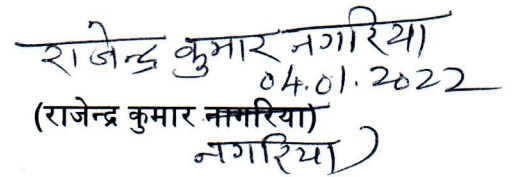 राजेन्द्र कुमार नगारिया
04.01.2022
(राजेन्द्र कुमार नागरिया)
नगरिया)